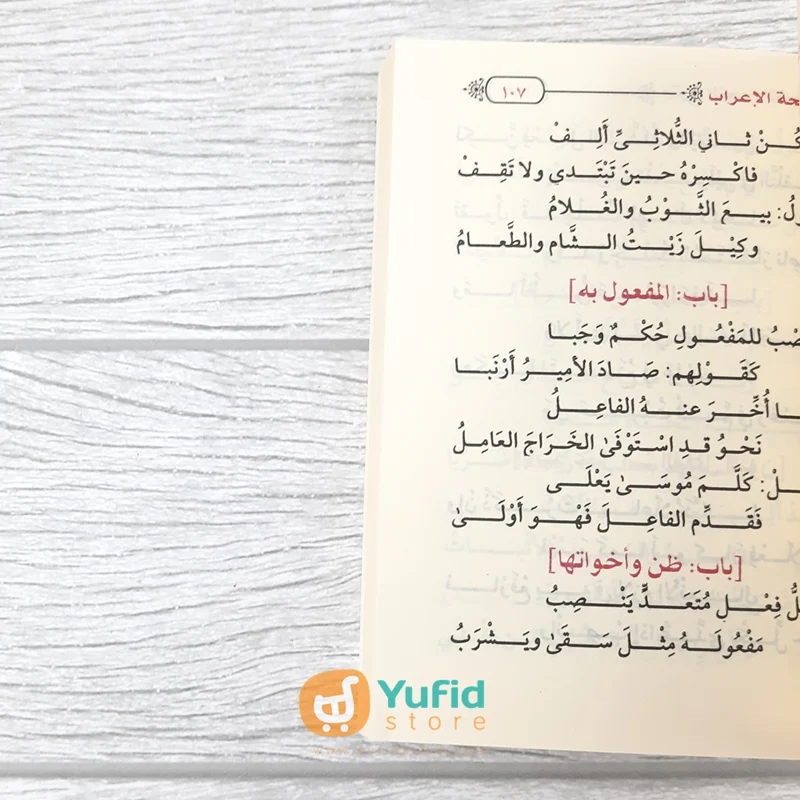 ١٠٧
الإعراب
ثاني الثُّلاثيِّ أَلِفْ
فاكْسِرْهُ حينَ تَبْتَدي ولا تَقِفْ
بيعَ الثَّوْبُ والغُلامُ
وكِيْلَ زَيْتُ الشَّام والطَّعامُ
[باب: المفعول به]
للمَفْعُولِ حُكْمٌ وَجَبا
كَقَوْلِهم: صَادَ الأمِيرُ أَرْنَبا
أُخِّرَ عنهُ الفاعِلُ
نَحْوُ قدِ اسْتَوْفَىٰ الخَرَاجَ العَامِلُ
كَلَّمَ مُوسَىٰ يَعْلَى
فَقَدِّم الفاعِلَ فَهْوَ أَوْلَىٰ
[باب: ظن وأخواتها]
فِعْلٍ مُتَعَدٍّ يَنْصِبُ
مَفْعُولَهُ مِثْلَ سَقَىٰ ويَشْرَبُ
Yufid
store